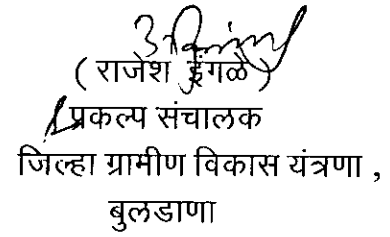 ( राजेश इंगळे )
प्रकल्प संचालक
जिल्हा ग्रामीण विकास यंत्रणा ,
बुलडाणा